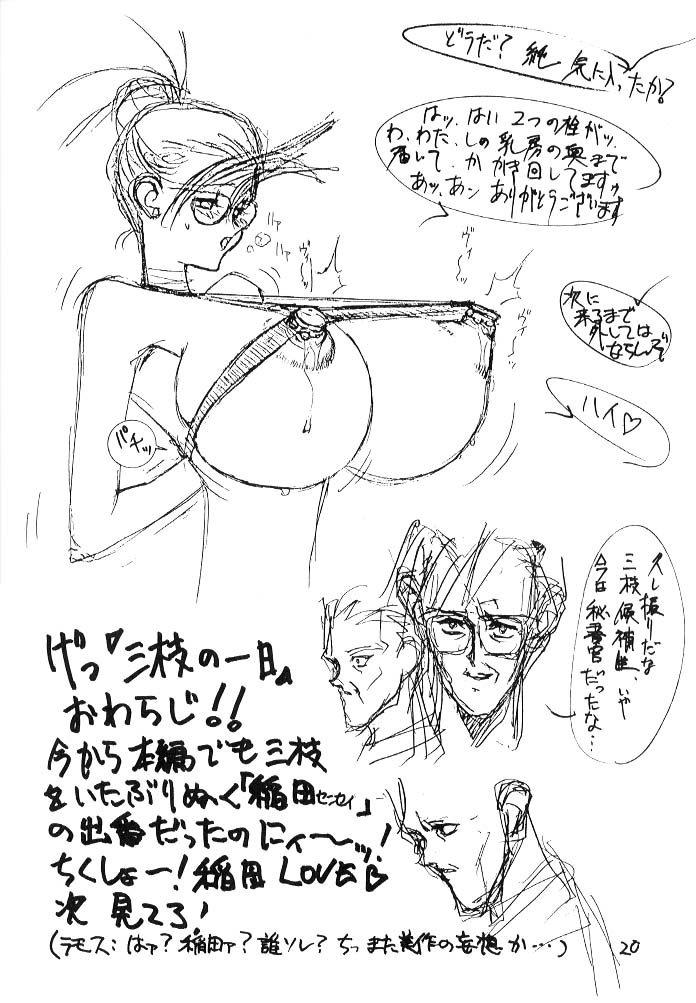 どうだ? 純 気に入ったか?
はッ、はい 2つの栓がッ、
わ、わたしの乳房の奥まで
届いて、か かき回してますッ
あッ、あン ありがとうございます
ヴィ〜
ヴィ〜
ハァ
ハァ
次に
来るまで
外しては
ならんぞ
ハイ♡
パチッ
久し振りだな
三枝候補生、いや
今は秘書官だったな…
げっ『三枝の一日』
おわらじ!!
今から本編でも三枝
をいたぶりぬく「稲田センセイ」
の出番だったのにィ〜ッ!
ちくしょー!稲田 LOVE♡
次 見てろ!
(デモス:はァ? 稲田ァ? 誰ソレ? ちっ また美作の妄想か…)
20